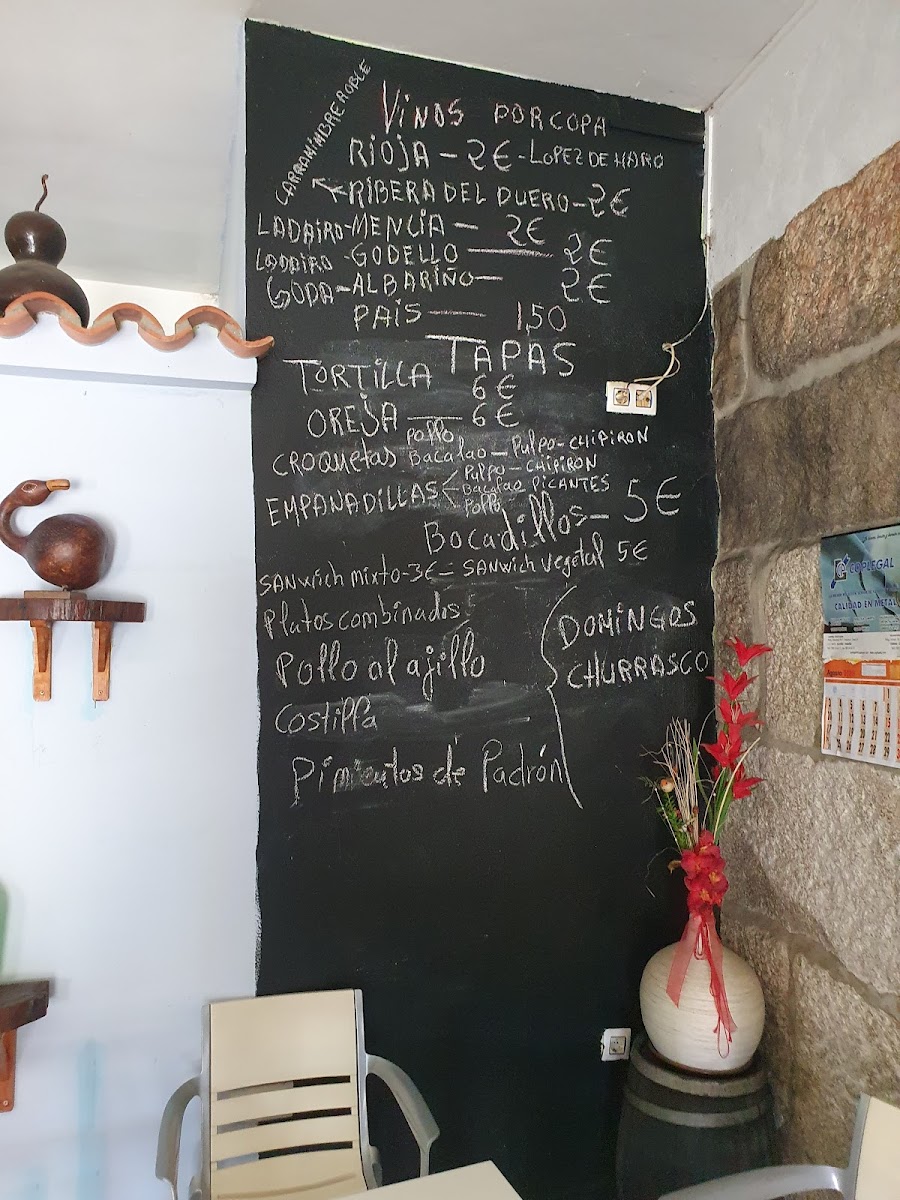 VINOS POR COPA
RIOJA - 2€ - LOPEZ DE HARO
CARRAMIMBRE ROBLE
RIBERA DEL DUERO - 2€
LADAIRO - MENCIA - 2€
LADAIRO - GODELLO 2€
GODA - ALBARIÑO - 2€
PAIS 1,50
TAPAS
TORTILLA 6€
OREJA 6€
CROQUETAS Pollo Bacalao - Pulpo - CHIPIRON
EMPANADILLAS Pulpo - CHIPIRON
Bacalao PICANTES
Pollo
Bocadillos - 5€
SANwich mixto - 3€ - SANwich vegetal 5€
Platos combinados
Pollo al ajillo
Costilla
Pimientos de Padrón
DOMINGOS
CHURRASCO
COPLEGAL
CALIDAD EN METAL
Agosto